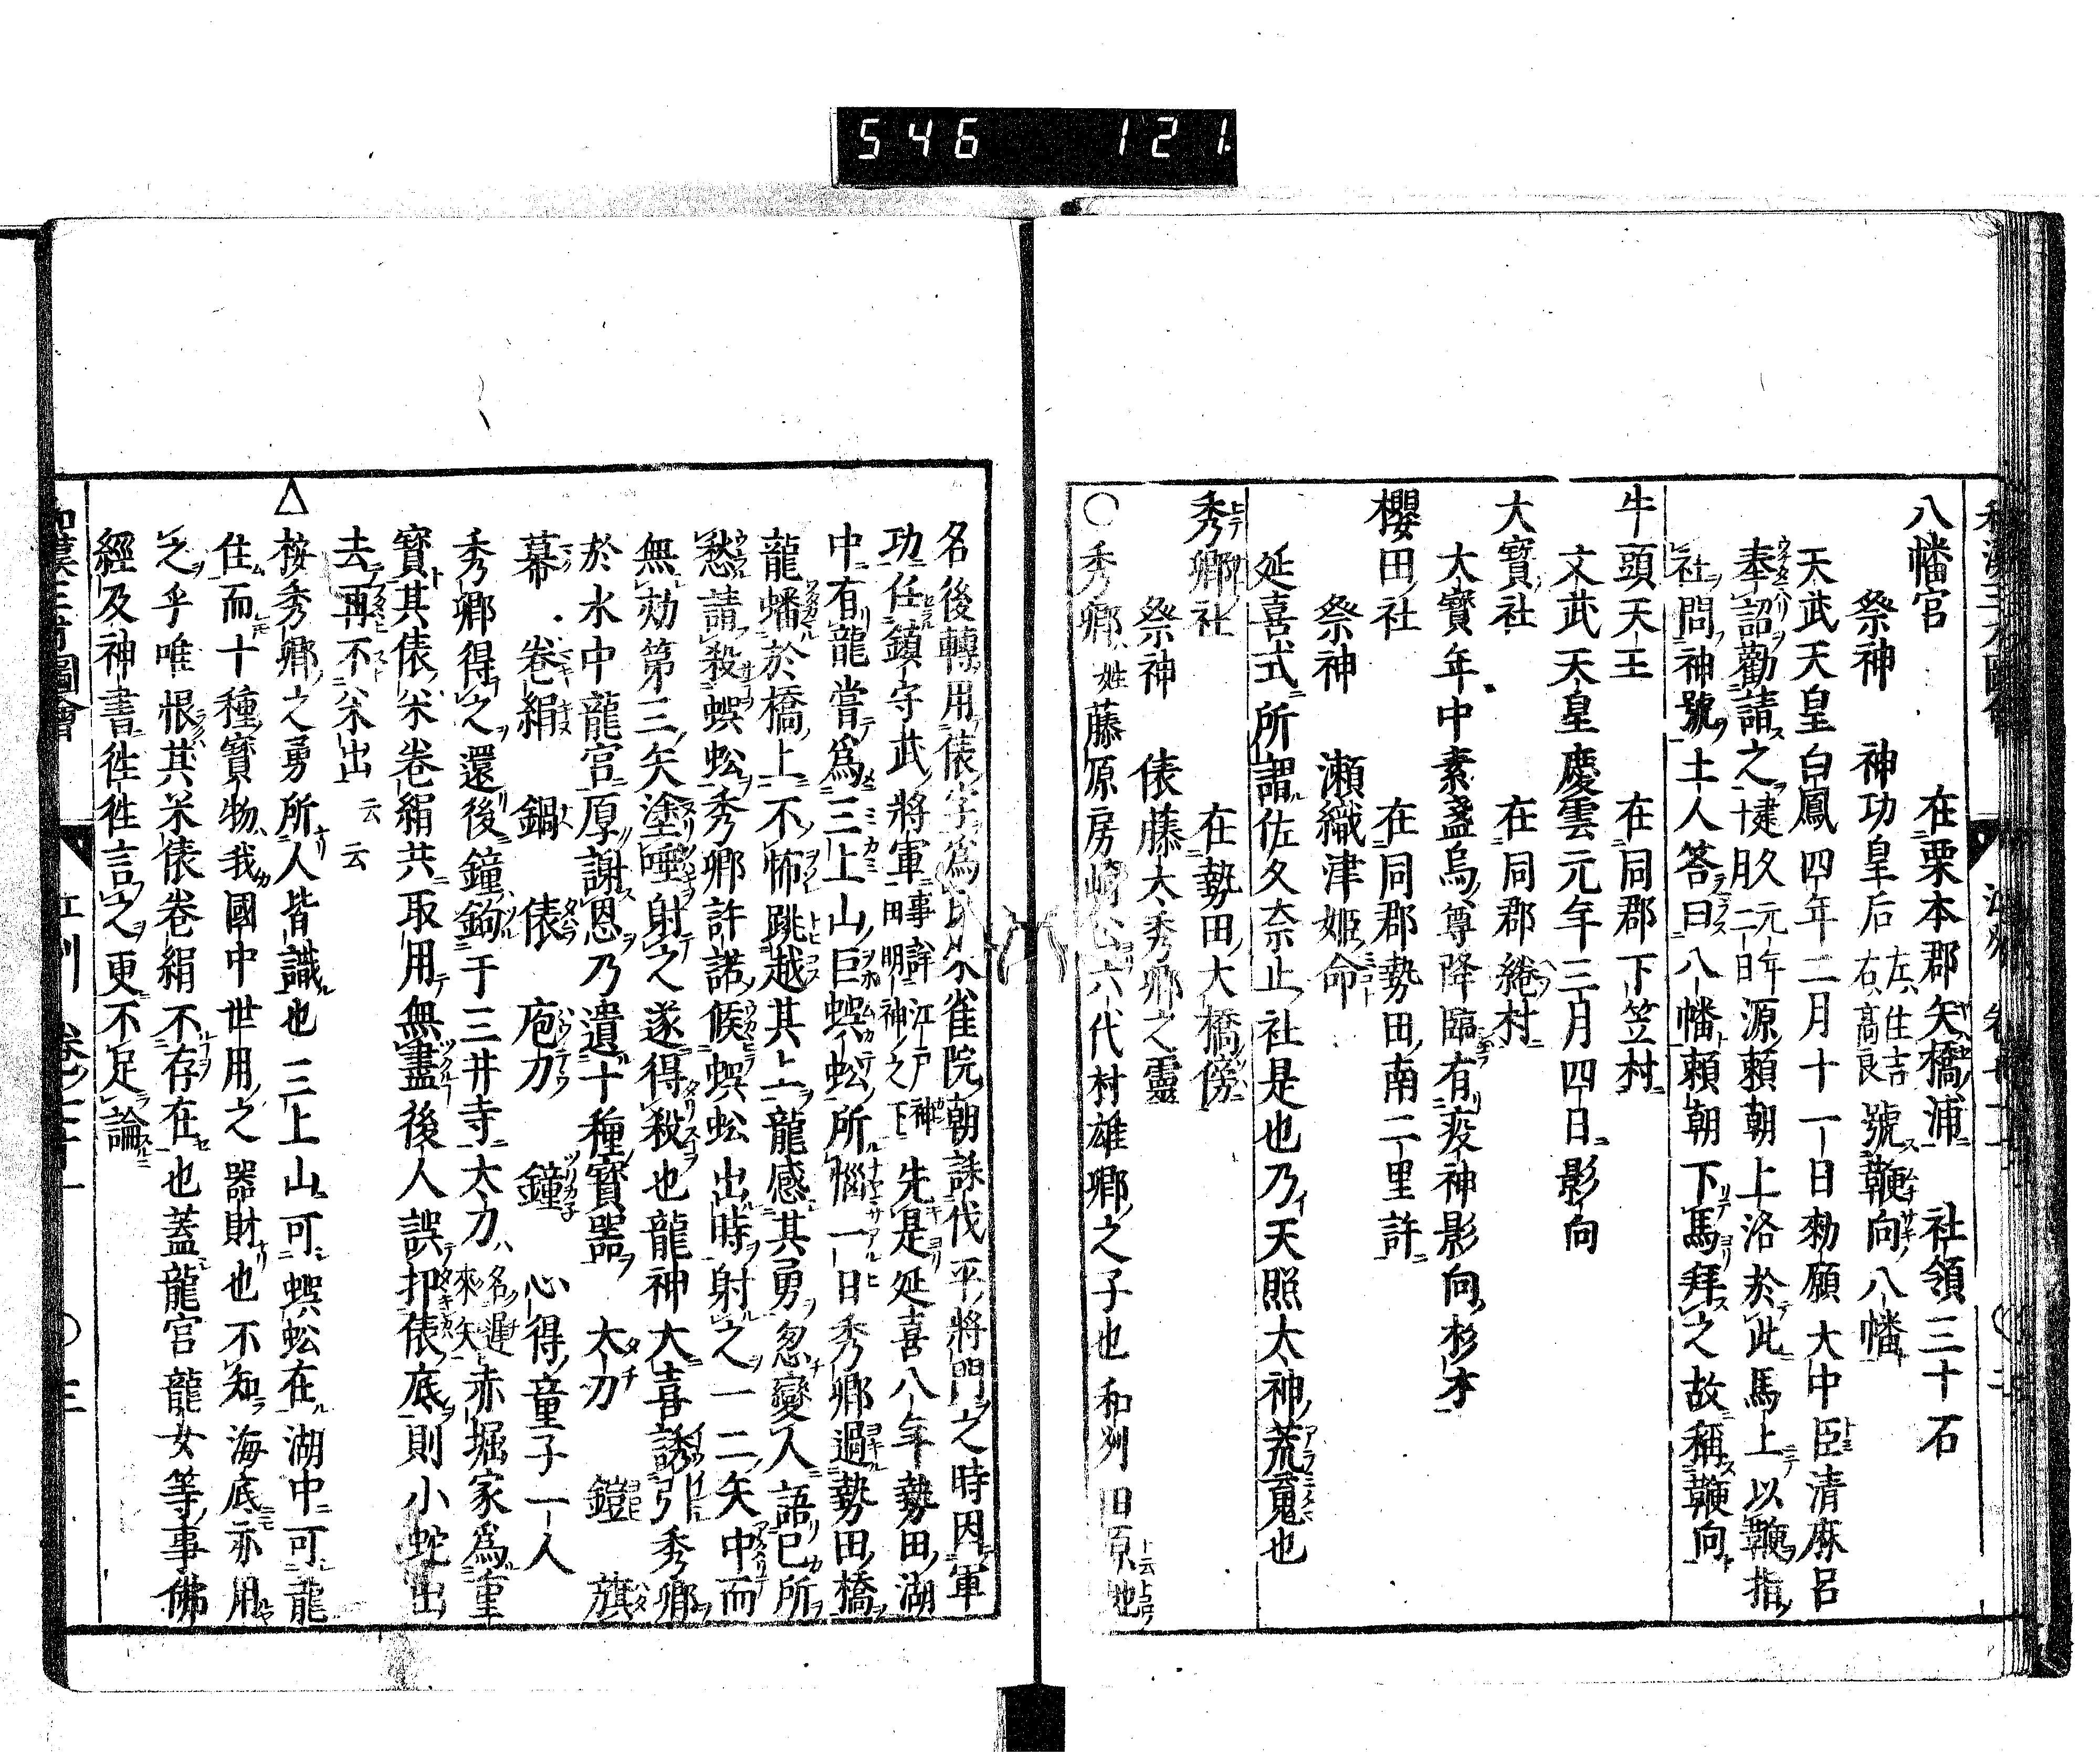 546 121
八幡宮 在栗本郡矢橋浦 社領三十石
祭神 神功皇后 左住吉 右高良 號鞭向八幡
天武天皇白鳳四年二月十一日勅願大中臣清麻呂
奉詔勸請之 建久元年十二月二日源賴朝上洛於此馬上以鞭指
社問神號土人答曰八幡賴朝下馬拜之故稱鞭向
牛頭天王 在同郡下笠村
文武天皇慶雲元年三月四日影向
大寶社 在同郡綣村
大寶年中素盞烏尊降臨有疫神影向杉才
櫻田社 在同郡勢田南二里許
祭神 瀬織津姫命
延喜式所謂佐久奈止社是也乃天照太神荒䰟也
秀鄕社 在勢田大橋傍
祭神 俵藤太秀鄕之靈
○秀鄕姓藤原房﨑公六代村雄鄕之子也和刕田原地
名後轉用俵字爲氏朱雀院朝誅伐平將門之時因軍
功任鎮守武將軍 事詳江戸神田明神之下 先是延喜八年勢田湖
中有龍嘗爲三上山巨蜈蚣所惱一日秀鄕過勢田橋
龍蟠於橋上不怖跳越其上龍感其勇忽變人語已所
愁請殺蜈蚣秀鄕許諾候蜈蚣出時射之一二矢中而
無効第三矢塗唾射之遂得殺也龍神大喜誘引秀鄕
於水中龍宮厚謝恩乃遺十種寶器 太刀 鎧 旗
幕 卷絹 鍋 俵 庖刀 鐘 心得童子一人
秀鄕得之還後鐘鉤于三井寺太刀 名遲來矢 赤堀家爲重
寳其俵米卷絹共取用無盡後人誤扣俵底則小蛇出
去再不米出云云
△按秀鄕之勇所人皆識也三上山可蜈蚣在湖中可龍
住而十種寶物我國中世用之器財也不知海底亦用
之乎唯恨其米俵卷絹不存在也蓋龍宮龍女等事佛
經及神書徃徃言之更不足論